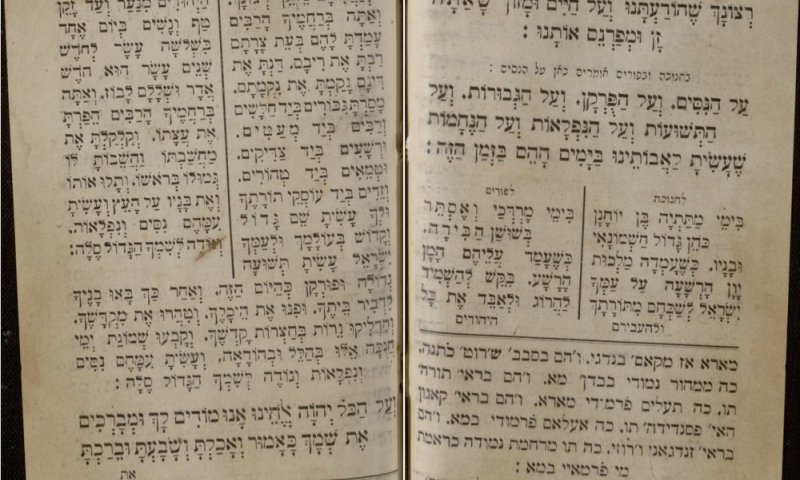 רְצוֹנָךְ שֶׁהוֹדַעְתָּנוּ וְעַל חַיִּים וּמָזוֹן שֶׁאַתָּה
זָן וּמְפַרְנֵס אוֹתָנוּ :
בחנוכה ובפורים אומרים כאן על הנסים :
עַל הַנִּסִּים. וְעַל הַפֻּרְקָן. וְעַל הַגְּבוּרוֹת. וְעַל
הַתְּשׁוּעוֹת וְעַל הַנִּפְלָאוֹת וְעַל הַנֶּחָמוֹת
שֶׁעָשִׂיתָ לַאֲבוֹתֵינוּ בַּיָּמִים הָהֵם בַּזְּמַן הַזֶּה :
לחנוכה
בִּימֵי מַתִּתְיָה בֶּן יוֹחָנָן
כֹּהֵן גָּדוֹל חַשְׁמוֹנָאִי
וּבָנָיו. כְּשֶׁעָמְדָה מַלְכוּת
יָוָן הָרְשָׁעָה עַל עַמְּךָ
יִשְׂרָאֵל לְשַׁכְּחָם מִתּוֹרָתָךְ
ולהעבירם
לפורים
בִּימֵי מָרְדְּכַי וְאֶסְתֵּר
בְּשׁוּשַׁן הַבִּירָה.
כְּשֶׁעָמַד עֲלֵיהֶם הָמָן
הָרָשָׁע. בִּקֵּשׁ לְהַשְׁמִיד
לַהֲרוֹג וּלְאַבֵּד אֶת כָּל
היהודים
מארא אז מקאם׳ בנדגי. ו׳הם בסבב׳ ש׳רוט׳ כ׳תנה.
כה ממהור נמודי בבדן׳ מא. ו׳הם בראי׳ תורה׳
תו. כה תעלים פ׳רמודי מארא. ו׳הם בראי׳ קאנון
האי׳ פסנדידה׳ תו. כה אעלאם פ׳רמודי במא. ו׳הם
בראי׳ זנדגאני ו׳רוזי. כה תו מרחמת נמודה כראמת
מי פ׳רמאיי במא :
וְאַתָּה בְּרַחֲמֶיךָ הָרַבִּים
עָמַדְתָּ לָהֶם בְּעֵת צָרָתָם
רַבְתָּ אֶת רִיבָם. דַּנְתָּ אֶת
דִּינָם נָקַמְתָּ אֶת נִקְמָתָם.
מָסַרְתָּ גִבּוֹרִים בְּיַד חַלָּשִׁים
וְרַבִּים בְּיַד מְעַטִּים.
וּרְשָׁעִים בְּיַד צַדִּיקִים.
וּטְמֵאִים בְּיַד טְהוֹרִים.
וְזֵדִים בְּיַד עוֹסְקֵי תוֹרָתֶךָ
וּלְךָ עָשִׂיתָ שֵׁם גָּדוֹל
וְקָדוֹשׁ בְּעוֹלָמָךְ וּלְעַמְּךָ
יִשְׂרָאֵל עָשִׂיתָ תְּשׁוּעָה
הַיְּהוּדִים מִנַּעַר וְעַד זָקֵן
טַף וְנָשִׁים בְּיוֹם אֶחָד
בִּשְׁלֹשָׁה עָשָׂר לְחֹדֶשׁ
שְׁנֵים עָשָׂר הוּא חֹדֶשׁ
אֲדָר וּשְׁלָלָם לָבוֹז. וְאַתָּה
בְּרַחֲמֶיךָ הָרַבִּים הֵפַרְתָּ
אֶת עֲצָתוֹ. וְקִלְקַלְתָּ אֶת
מַחֲשַׁבְתּוֹ וַהֲשֵׁבוֹתָ לּוֹ
גְּמוּלוֹ בְּרֹאשׁוֹ. וְתָלוּ אוֹתוֹ
וְאֶת בָּנָיו עַל הָעֵץ וְעָשִׂיתָ
עִמָּהֶם נִסִּים וְנִפְלָאוֹת.
וְנוֹדֶה לְשִׁמְךָ הַגָּדוֹל סֶלָה:
גְּדוֹלָה וּפוּרְקָן כְּהַיּוֹם הַזֶּה. וְאַחַר כָּךְ בָּאוּ בָנֶיךָ
לִדְבִיר בֵּיתֶךָ. וּפִנּוּ אֶת הֵיכָלֶךָ. וְטִהֲרוּ אֶת מִקְדָּשֶׁךָ.
וְהִדְלִיקוּ נֵרוֹת בְּחַצְרוֹת קָדְשֶׁךָ. וְקָבְעוּ שְׁמוֹנַת יְמֵי
חֲנֻכָּה אֵלּוּ בְּהַלֵּל וּבְהוֹדָאָה. וְעָשִׂיתָ עִמָּהֶם נִסִּים
וְנִפְלָאוֹת וְנוֹדֶה לְשִׁמְךָ הַגָּדוֹל סֶלָה :
וְעַל הַכֹּל יְהֹוָה אֱלֹהֵינוּ אָנוּ מוֹדִים לָךְ וּמְבָרְכִים
אֶת שְׁמָךְ כָּאָמוּר וְאָכַלְתָּ וְשָׂבָעְתָּ וּבֵרַכְתָּ
את